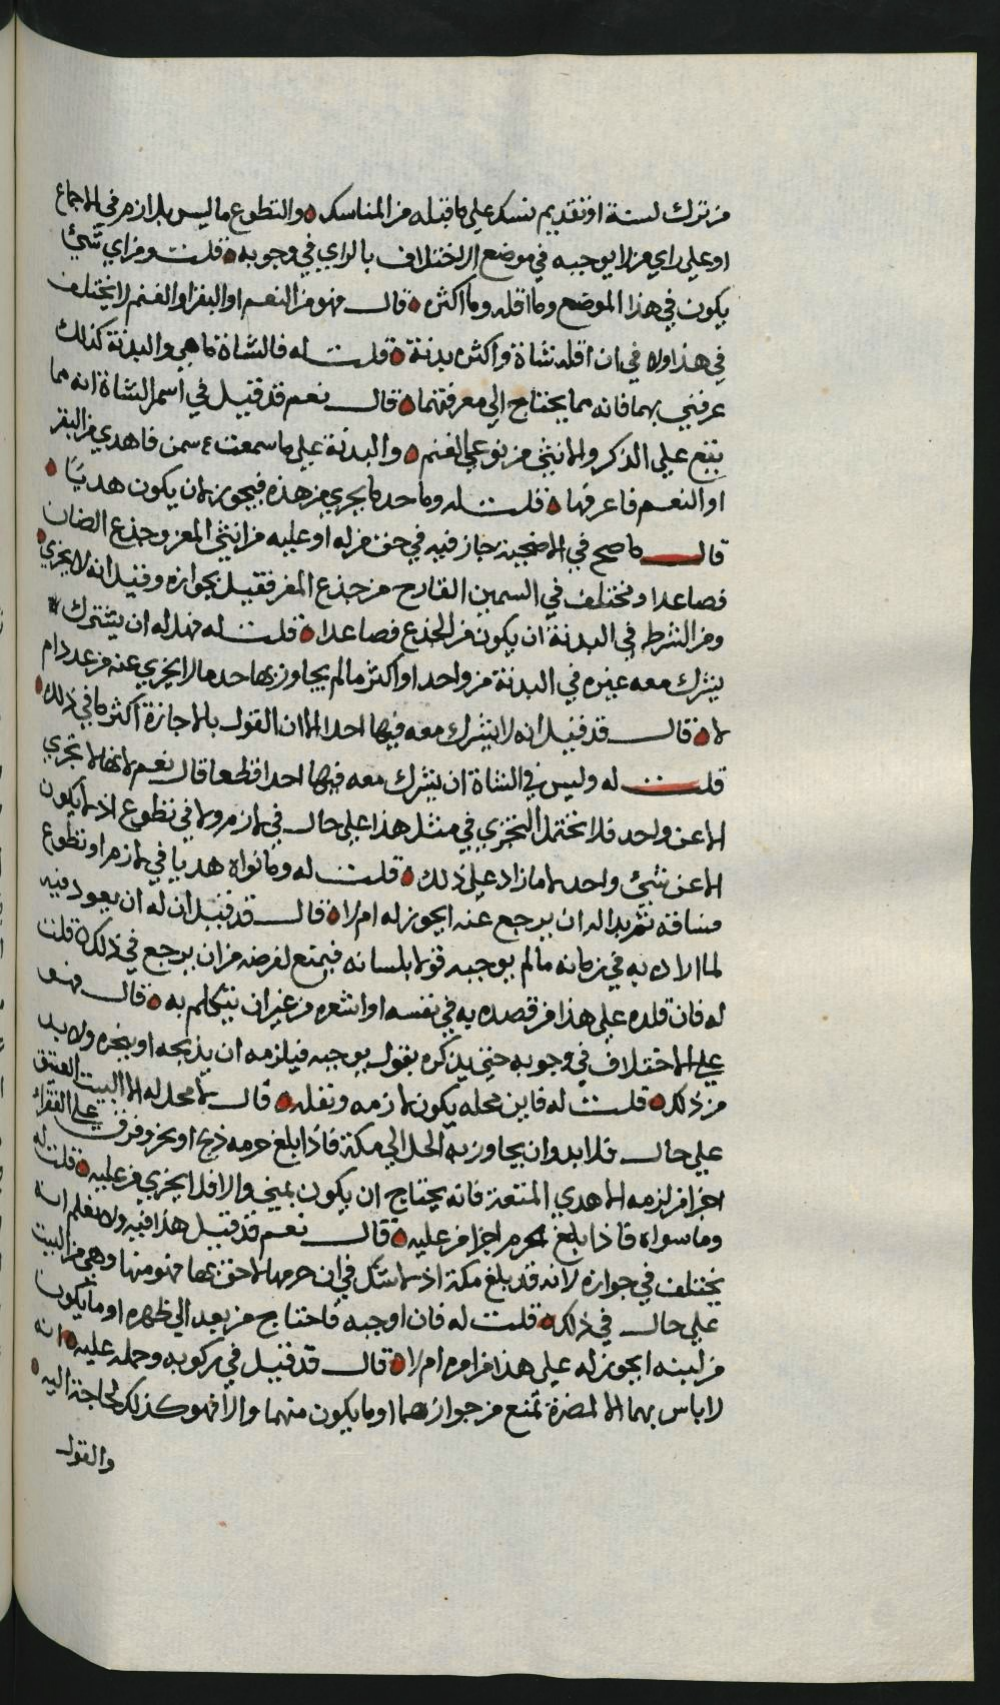 من ترك لسنة او تقديم نسك على ما قبله من المناسك والتطوع ما ليس بلازم في الاجماع
او على راي من لا يوجبه في موضع الاختلاف بالراي في وجوبه قلت ومن اي شئ
يكون في هذا الموضع وما اقله وما اكثره قال فهو من النعم او البقر او الغنم لا يختلف
في هذا ولا في ان اقله شاة واكثره بدنة قلت له فالشاة ما هي والبدنة كذلك
عرفني بهما فانه مما يحتاج الى معرفتهما قال نعم قد قيل في اسم الشاة انه مما
يقع على الذكر والانثى من نوعي الغنم والبدنة على ما سمعت من فاهدي من البقر
او النعم فاعرفها قلت له وما حد ما يجزي من هذه فيجوز لان يكون هديًا
قال ما صح في الاضحية جاز فيه في حق من له او عليه من انثى المعز وجذع الضان
فصاعدا ومختلف في السمين القارح من جذع المعز فقيل بجوازه وقيل انه لا يجزي
ومن الشرط في البدنة ان يكون من الجذع فصاعدا قلت له فهل له ان يشترك
يشرك معه غيره في البدنة من واحد او اكثر ما لم يجاوز بها حد ما لا يجزي عنه من عدد ام
لا قال قد قيل انه لا يشرك معه فيها احدا الا ان القول بالاجازة اكثر ما في ذلك
قلت له وليس في الشاة ان يشرك معه فيها احدا قطعا قال نعم لانها لا تجزي
الا عن واحد فلا تحتمل التجزي في مثل هذا على حال في لازم ولا في تطوع اذ لا يكون
الا عن شئ واحد لا ما زاد على ذلك قلت له وما نواه هديا في لازم او تطوع
فساقه ثم بدا له ان يرجع عنه ايجوز له ام لا قال قد قيل ان له ان يعود فيه
لما اراده به في زمانه ما لم يوجبه قولا بلسانه فيمنع لفرضه من ان يرجع في ذلك قلت
له فان قلده على هذا من قصده به في نفسه او اشعره من غير ان يتكلم به قال فهو
على الاختلاف في وجوبه حتى يذكره بقول يوجبه فيلزمه ان يذبحه او ينحره ولا بد
من ذلك قلت له فاين محله يكون لازمه ونفله قال لا محل له الا البيت العتيق
على حال فلا بد وان يجاوز به الحل الى مكة فاذا بلغ حرمه ذبح او نحر وفرق على الفقراء
اجزا من لزمه الا هدي المتعة فانه يحتاج ان يكون بمنى والا فلا يجزي من عليه قلت له
وما سواه فاذا بلغ الحرم اجزا من عليه قال نعم قد قيل هذا فيه ولا نعلم انه
يختلف في جوازه لانه قد بلغ مكة اذ لا شك في ان حرمها لاحق بها فهو منها وهي من البيت
على حال في ذلك قلت له فان اوجبه فاحتاج من بعد الى ظهره او ما يكون
من لبنه ايجوز له على هذا من امره ام لا قال قد قيل في ركوبه وحمله عليه انه
لا باس بهما الا لمضرة تمنع من جوازهما او ما يكون منهما والا فهو كذلك لحاجة اليه
والقول